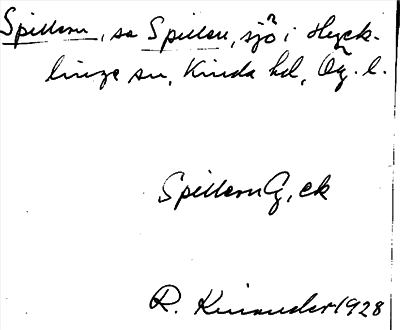 Spillern, se Spillen, sjö i Hyck-
linge sn, Kinda hd, Ög. l.
Spillern G, ek
R. Kinander 1928